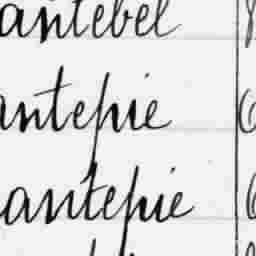 antebel
antepie
antepie